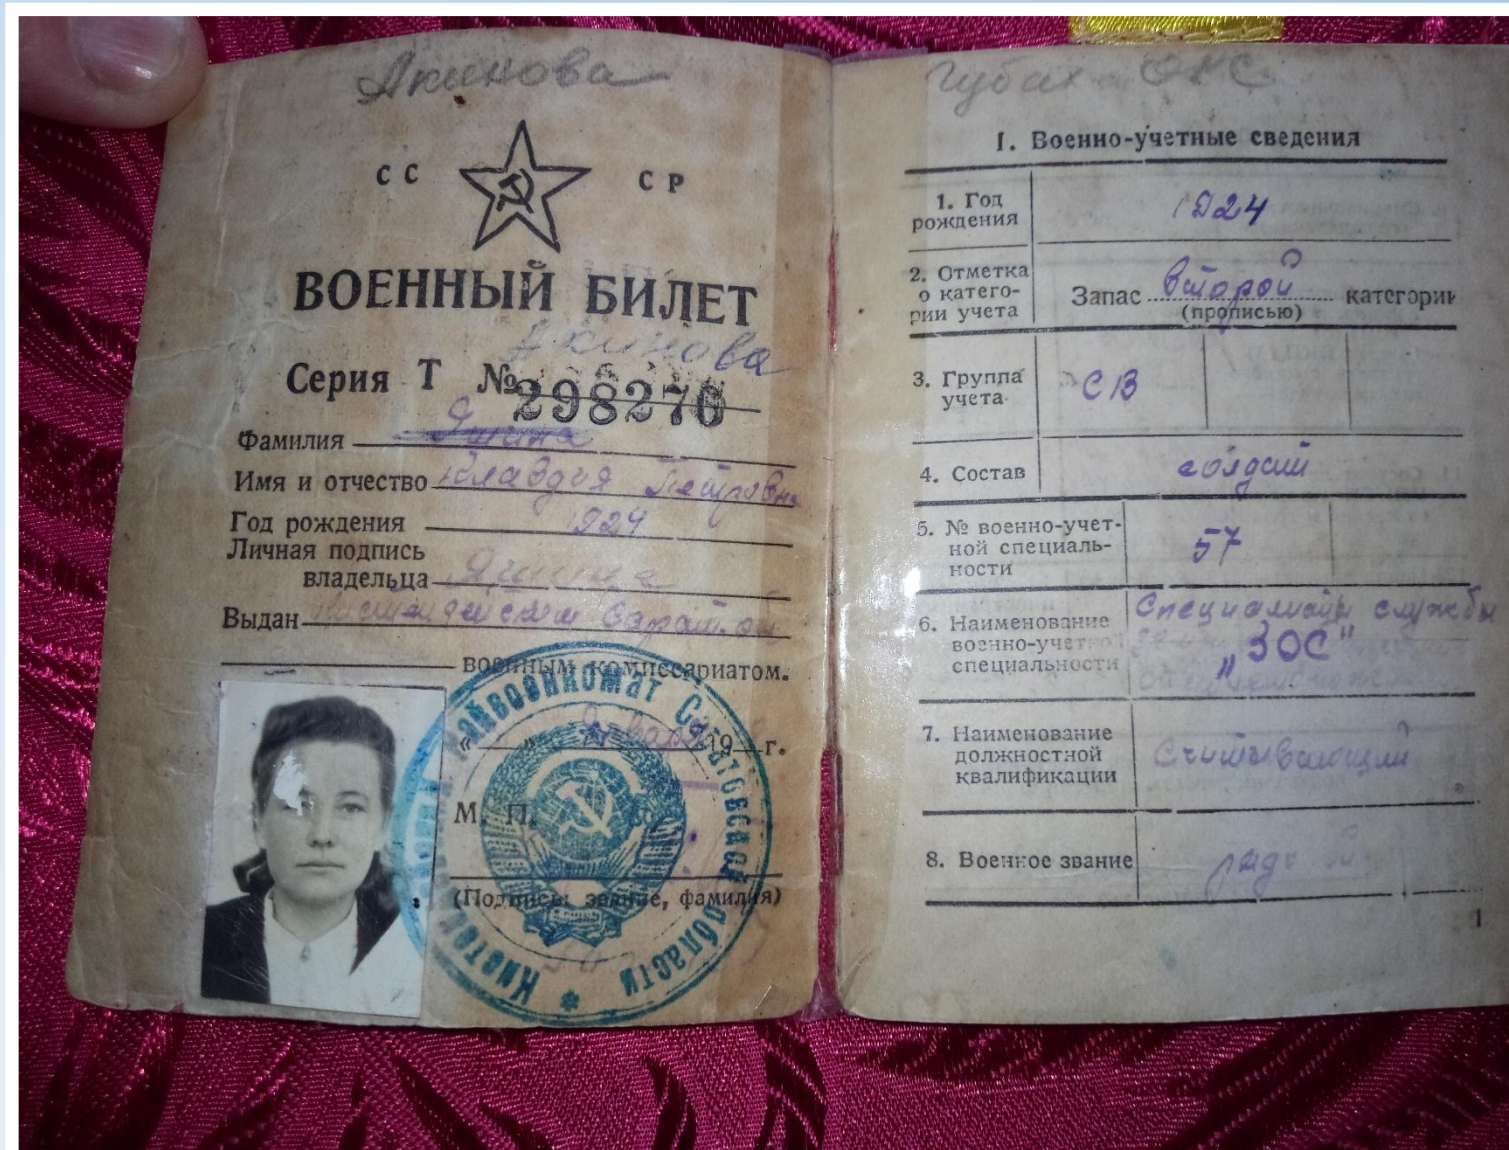 Акинова
СС СР
ВОЕННЫЙ БИЛЕТ
Акинова
Серия Т № 298276
Фамилия
Имя и отчество Клавдия Петровна
Год рождения 1924
Личная подпись
владельца
Выдан
военным комиссариатом.
« » января 19 г.
М. П.
(Подпись, звание, фамилия)
райвоенкомат Саратовской области *
I. Военно-учетные сведения
1. Год
рождения
1924
2. Отметка
о катего-
рии учета
Запас второй категории
(прописью)
3. Группа
учета
СВ
4. Состав солдат
5. № военно-учет-
ной специаль-
ности
57
6. Наименование
военно-учетной
специальности
Специалисты службы
„ЗОС"
7. Наименование
должностной
квалификации
Считывающий
8. Военное звание
1